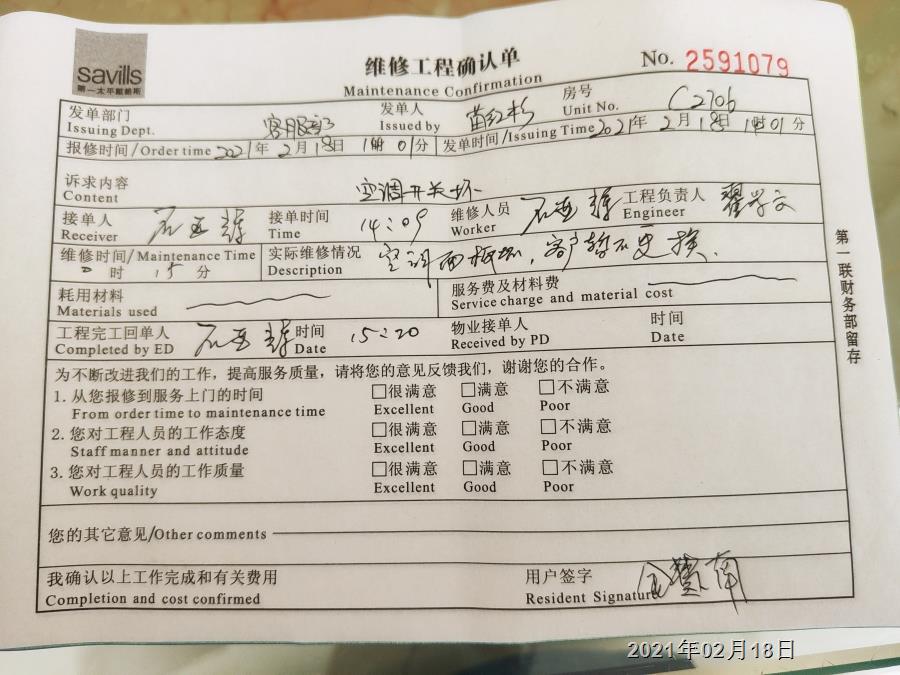 savills
第一太平戴维斯
维修工程确认单
Maintenance Confirmation
No. 2591079
发单部门 客服部 发单人 苗红彬 房号 C2706
Issuing Dept. Issued by Unit No.
报修时间/Order time 2021年2月18日 14时01分 发单时间/Issuing Time 2021年2月18日 14时01分
诉求内容 空调开关坏
Content
接单人 接单时间 14:09 维修人员 工程负责人
Receiver Time Worker Engineer
维修时间/Maintenance Time 实际维修情况 空调面板坏，客户暂不更换.
时 15分 Description
耗用材料 服务费及材料费
Materials used Service charge and material cost
工程完工回单人 时间 15:20 物业接单人 时间
Completed by ED Date Received by PD Date
为不断改进我们的工作，提高服务质量，请将您的意见反馈我们，谢谢您的合作。
1. 从您报修到服务上门的时间 □很满意 □满意 □不满意
From order time to maintenance time Excellent Good Poor
2. 您对工程人员的工作态度 □很满意 □满意 □不满意
Staff manner and attitude Excellent Good Poor
3. 您对工程人员的工作质量 □很满意 □满意 □不满意
Work quality Excellent Good Poor
您的其它意见/Other comments
我确认以上工作完成和有关费用 用户签字
Completion and cost confirmed Resident Signature
第一联财务部留存
2021年02月18日